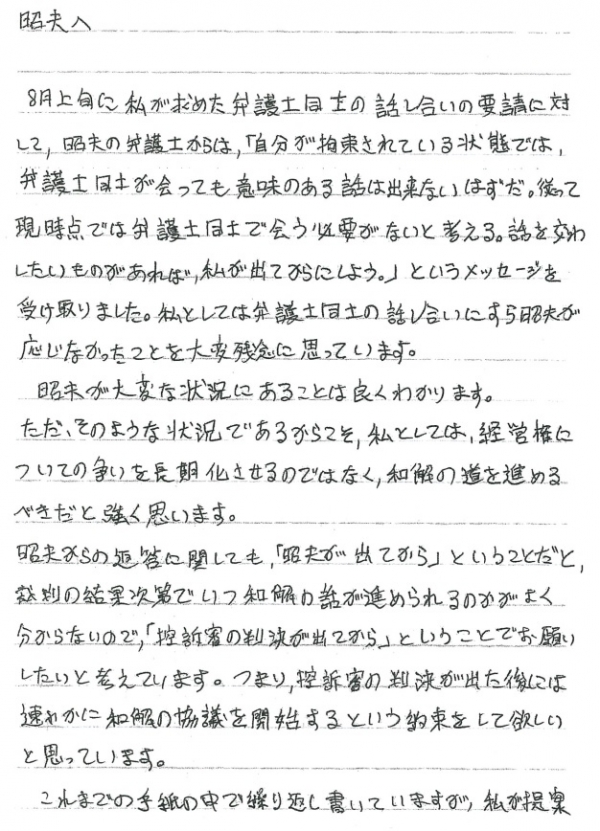 昭夫へ
8月上旬に私が求めた弁護士同士の話し合いの要請に対
して、昭夫の弁護士からは、「自分が拘束されている状態では、
弁護士同士が会っても意味のある話は出来ないはずだ。従って
現時点では弁護士同士で会う必要がないと考える。話を交わ
したいものがあれば、私が出てからにしよう。」というメッセージを
受け取りました。私としては弁護士同士の話し合いにすら昭夫が
応じなかったことを大変残念に思っています。
昭夫が大変な状況にあることは良くわかります。
ただ、そのような状況であるからこそ、私としては、経営権に
ついての争いを長期化させるのではなく、和解の道を進める
べきだと強く思います。
昭夫からの返答に関しても、「昭夫が出てから」ということだと、
裁判の結果次第でいつ和解の話が進められるのかがよく
分からないので、「控訴審の判決が出てから」ということでお願い
したいと考えています。つまり、控訴審の判決が出た後には
速やかに和解の協議を開始するという約束をして欲しい
と思っています。
これまでの手紙の中で繰り返し書いていますが、私が提案